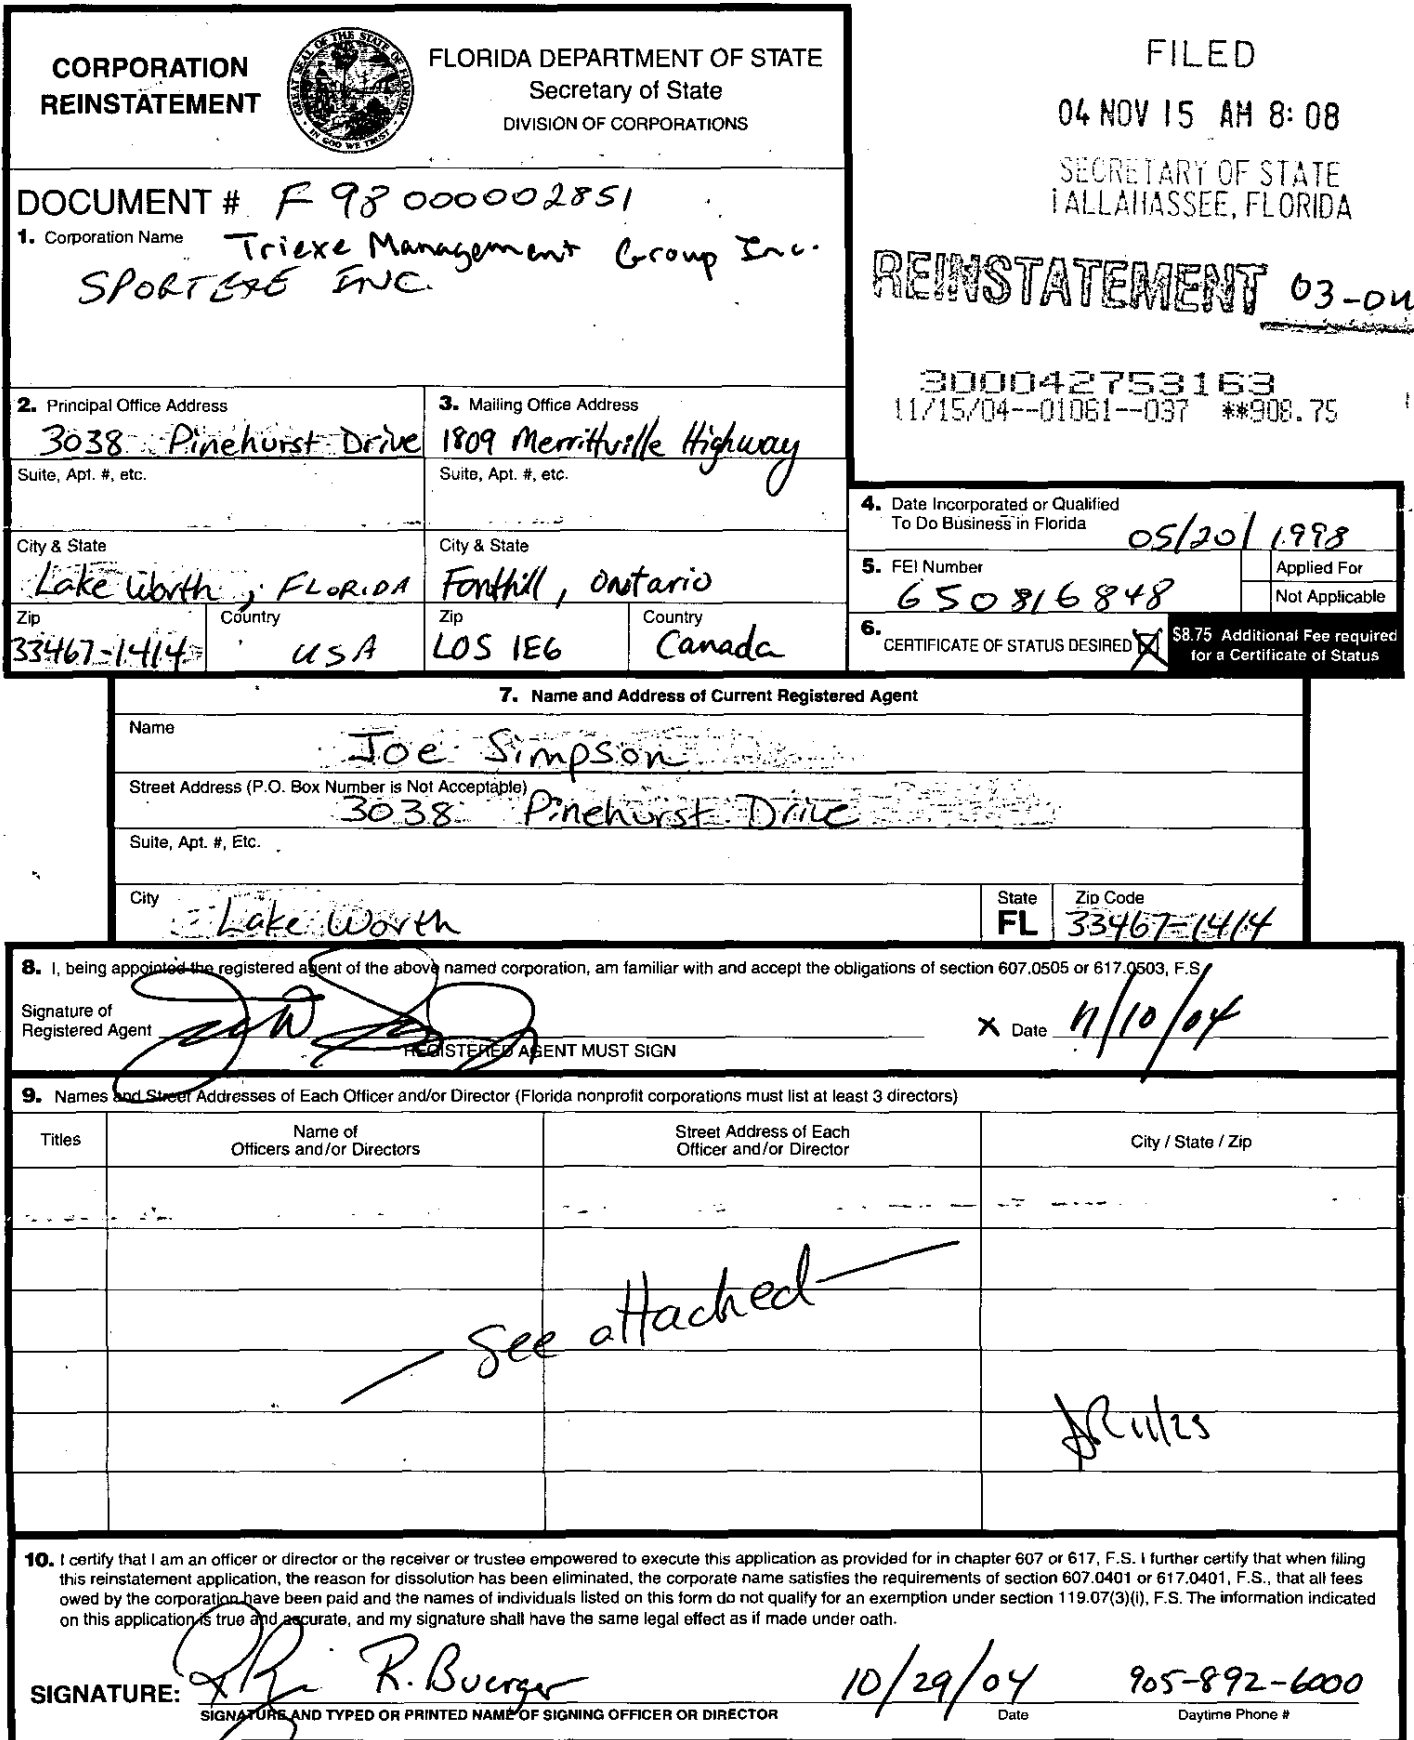 CORPORATION
REINSTATEMENT
GREAT SEAL OF THE STATE OF FLORIDA
IN GOD WE TRUST
FLORIDA DEPARTMENT OF STATE
Secretary of State
DIVISION OF CORPORATIONS
FILED
04 NOV 15 AM 8:08
SECRETARY OF STATE
TALLAHASSEE, FLORIDA
REINSTATEMENT 03-04
300042753163
11/15/04--01061--037 **908.75
DOCUMENT # F98000002851
1. Corporation Name Triexe Management Group Inc.
SPORTEXE INC.
2. Principal Office Address
3038 Pinehurst Drive
3. Mailing Office Address
1809 Merrittville Highway
Suite, Apt. #, etc.
Suite, Apt. #, etc.
City & State
Lake Worth, FLORIDA
City & State
Fonthill, Ontario
Zip
33467-1414
Country
USA
Zip
LOS 1E6
Country
Canada
4. Date Incorporated or Qualified
To Do Business in Florida 05/20/1998
5. FEI Number
650816848
Applied For
Not Applicable
6. CERTIFICATE OF STATUS DESIRED X
$8.75 Additional Fee required
for a Certificate of Status
7. Name and Address of Current Registered Agent
Name
Joe Simpson
Street Address (P.O. Box Number is Not Acceptable)
3038 Pinehurst Drive
Suite, Apt. #, Etc.
City
Lake Worth
State
FL
Zip Code
33467-1414
8. I, being appointed the registered agent of the above named corporation, am familiar with and accept the obligations of section 607.0505 or 617.0503, F.S.
Signature of
Registered Agent
X Date 11/10/04
REGISTERED AGENT MUST SIGN
9. Names and Street Addresses of Each Officer and/or Director (Florida nonprofit corporations must list at least 3 directors)
Titles
Name of
Officers and/or Directors
Street Address of Each
Officer and/or Director
City / State / Zip
See attached
10. I certify that I am an officer or director or the receiver or trustee empowered to execute this application as provided for in chapter 607 or 617, F.S. I further certify that when filing
this reinstatement application, the reason for dissolution has been eliminated, the corporate name satisfies the requirements of section 607.0401 or 617.0401, F.S., that all fees
owed by the corporation have been paid and the names of individuals listed on this form do not qualify for an exemption under section 119.07(3)(i), F.S. The information indicated
on this application is true and accurate, and my signature shall have the same legal effect as if made under oath.
SIGNATURE: R. Buerger 10/29/04 905-892-6000
SIGNATURE AND TYPED OR PRINTED NAME OF SIGNING OFFICER OR DIRECTOR
Date
Daytime Phone #